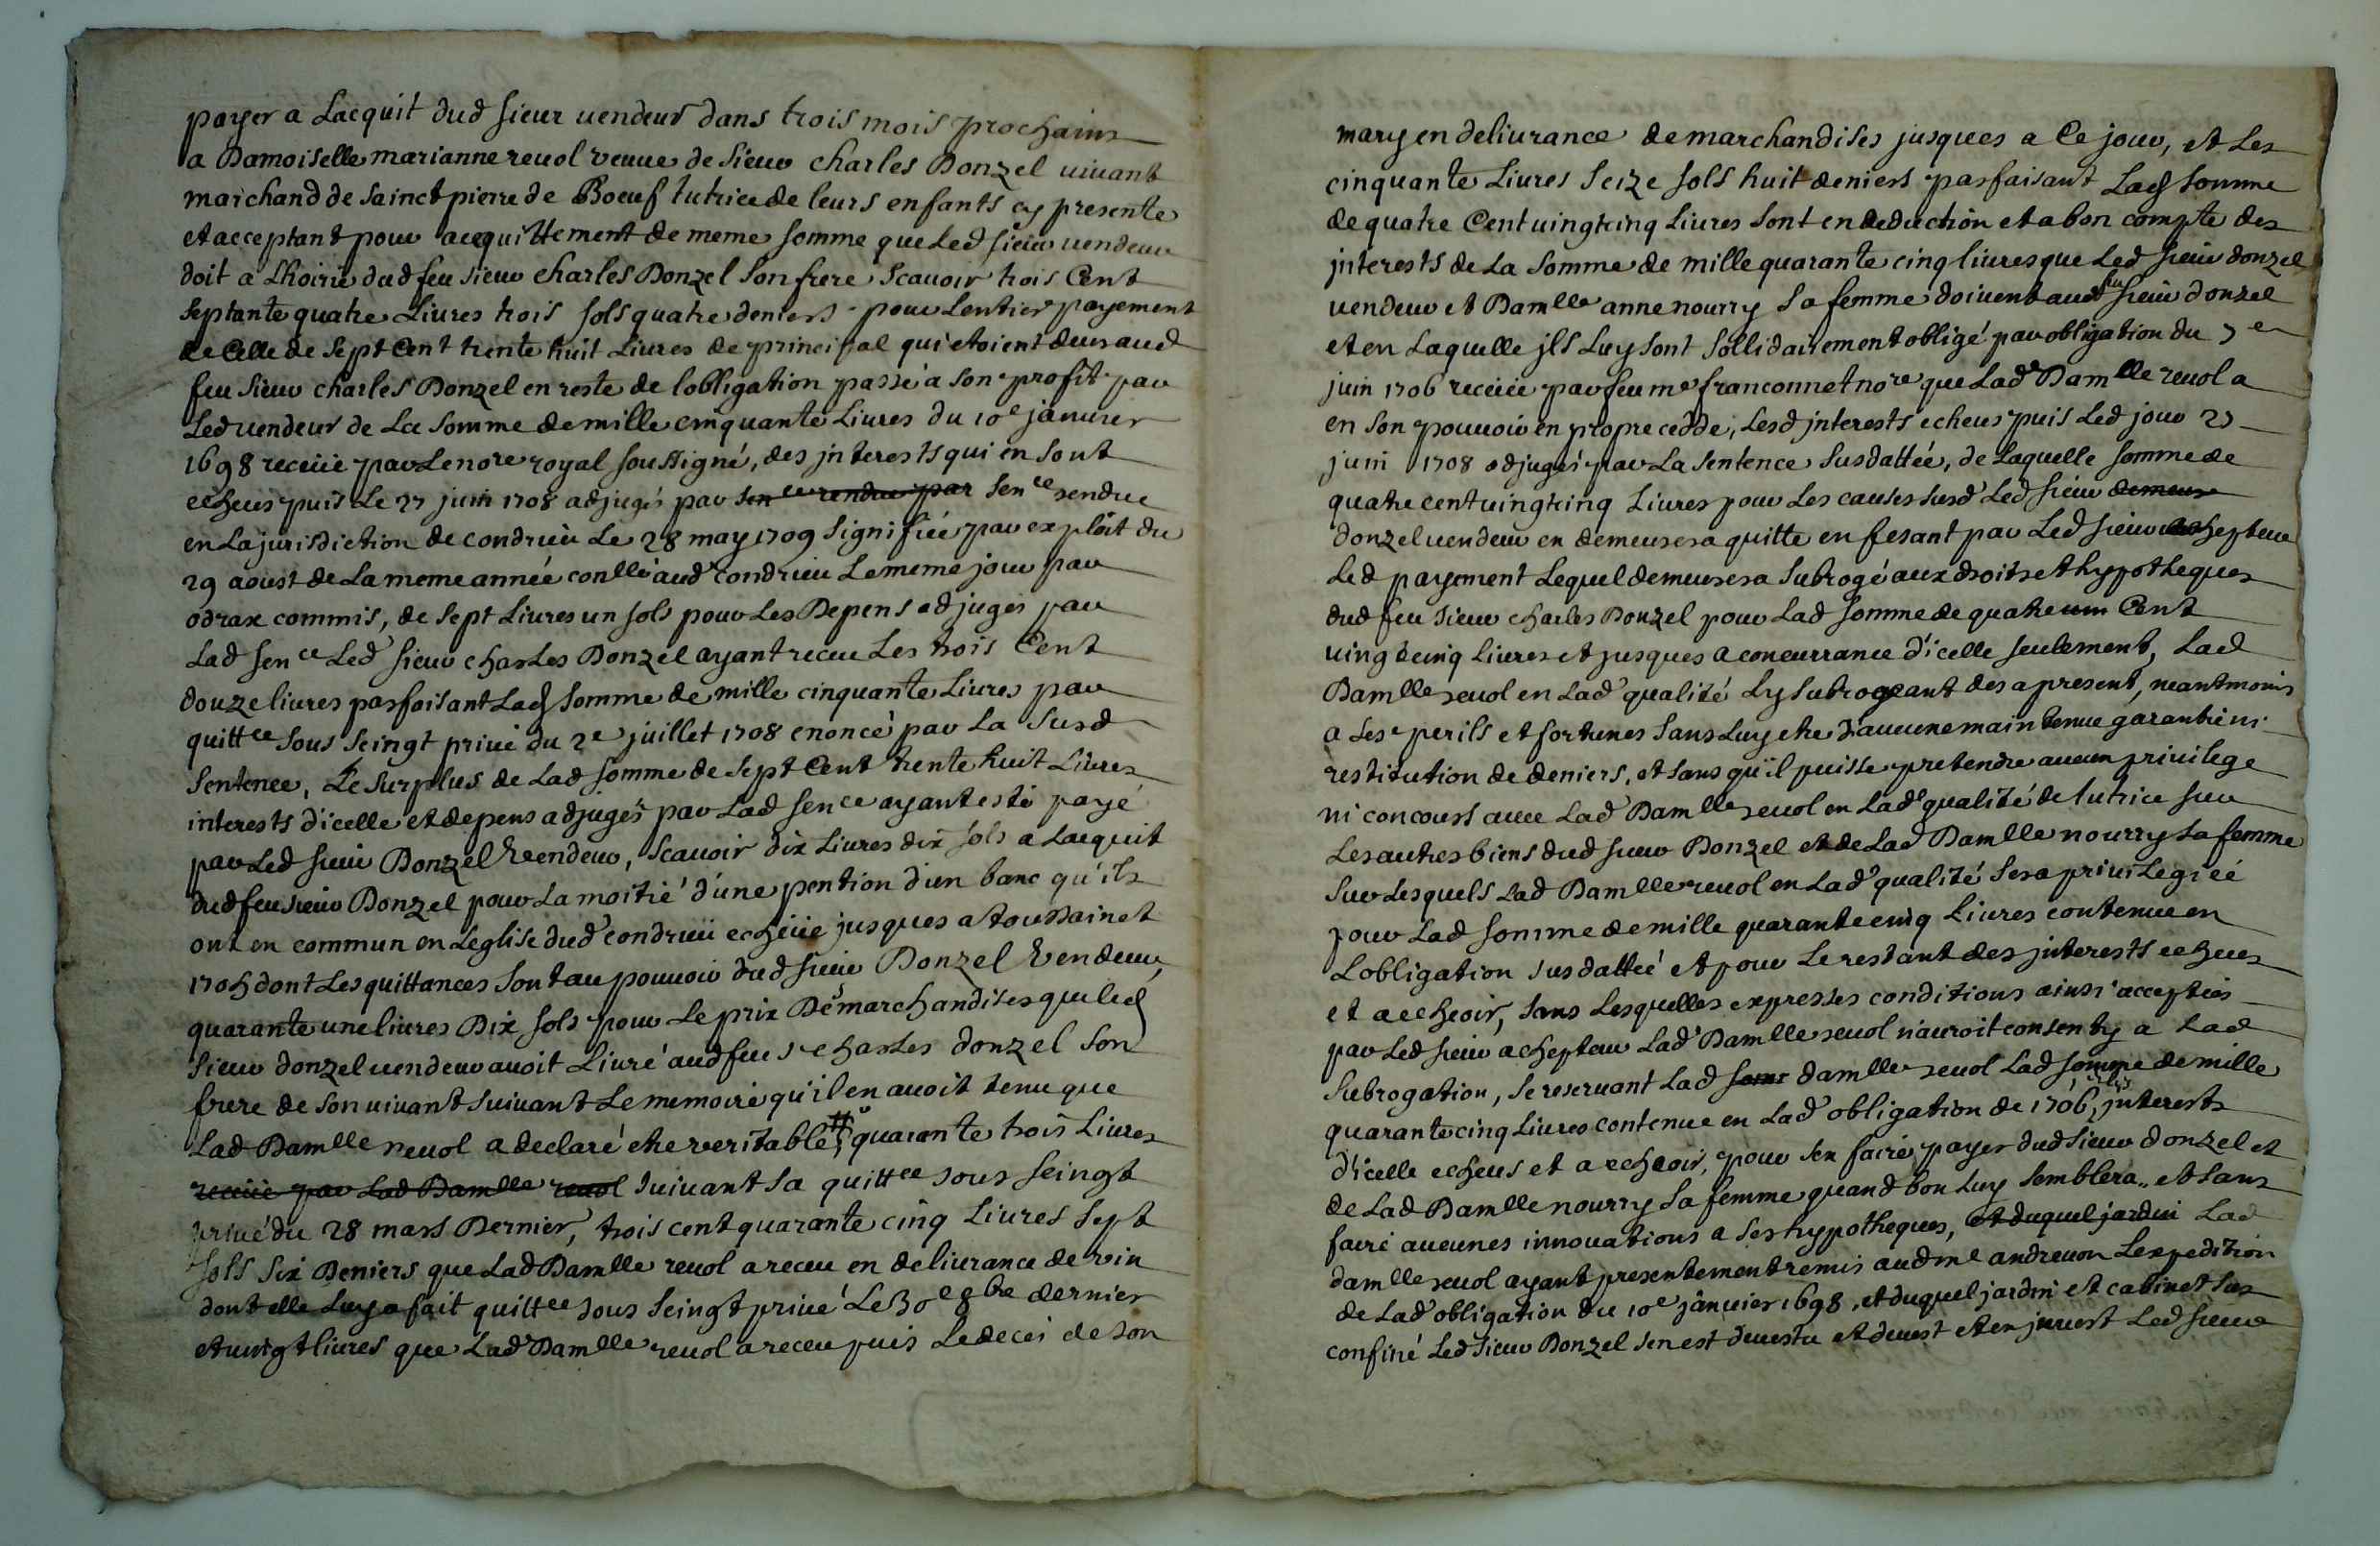 payer a Lacquit dud sieur vendeur dans trois mois prochains
a Damoiselle marianne revol veuue de sieur charles Donzel uiuant
marchand de sainct pierre de Boeuf tutrice de leurs enfants cy presente
et acceptant pour acquittement de meme somme que Led sieur uendeur
doit a Lhoirie dud feu sieur charles Donzel son frere Scauoir trois Cent
septante quatre Liures trois sols quatre deniers pour Lentier payement
de Celle de sept Cent trente huit Liures de principal qui etoient deus aud
feu sieur charles Donzel en reste de lobligation passé a son profit par
Led uendeur de La somme de mille cinquante Liures du 10e januier
1698 receüe par Le nore royal soussigné, des jnterests qui en sont
echeus puis Le 27 juin 1708 adjugés par sence rendue par sence rendue
en La jurisdiction de condrieu Le 28 may 1709 signifiée par exploit du
29 aoust de La meme année conllé aud condrieu Le meme jour par
odrax commis, de sept Liures un sols pour Les Depens adjugés par
Lad sence Led sieur charles Donzel ayant receu Les trois Cent
douze liures parfaisant Lad somme de mille cinquante Liures par
quittce sous seingt priué du 2e juillet 1708 enoncé par La susd
sentence, Le surplus de Lad somme de sept Cent trente huit Liures
interests dicelle et depens adjugés par Lad sence ayant esté payé
par Led sieur Donzel Vendeur, scauoir dix Liures dix sols a Lacquit
dud feu sieur Donzel pour La moitié d'une pention d'un banc qu'ils
ont en commun en Léglise dud condrieu echeüe jusques a toussainct
170h dont Les quittances sont au pouuoir dud sieur Donzel Vendeur,
quarante une liures Dix sols pour Le prix Des marchandises que led
sieur donzel uendeur auoit Liuré aud feu sr charles donzel son
frere de son uiuant suiuant Le memoire qu'il en auoit tenu que
Lad Damlle reuol a declaré etre veritable # quarante trois Liures
receüe par Lad Damlle reuol suiuant sa quittce sous seingt
priué du 28 mars Dernier, trois cent quarante cinq Liures sept
sols six Deniers que Lad Damlle reuol a receu en deliurance de vin
dont elle Luy a fait quittce sous seingt priué Le 30e 8bre dernier
et uingt liures que Lad Damlle reuol a receu puis Le deces de son
mary en deliurance de marchandises jusques a Ce jour, et Les
cinquante Liures seize sols huit deniers parfaisant Lad somme
de quatre Cent uingt cinq Liures sont en deduction et a bon compte des
jnterests de La somme de mille quarante cinq liures que Led sieur donzel
uendeur et Damlle anne nourry sa femme doiuent aud feu sieur donzel
et en Laquelle jls Luy sont sollidairement obligé par obligation du 7e
juin 1706 receüe par feu me franconnet nore que Lad Damlle reuol a
en son pouuoir en propre cedde, Lesd jnterests echeus puis Led jour 27
juin 1708 adjugés par La sentence susdattée, de Laquelle somme de
quatre cent uingt cinq Liures pour Les causes susd Led sieur demeure
donzel uendeur en demeurera quitte en fesant par Led sieur achepteur
Led payement Lequel demeurera subrogé aux droits et hypotheques
dud feu sieur charles Donzel pour Lad somme de quatre Cent
uingt cinq liures et jusques a concurrance d'icelle seulement, Lad
Damlle reuol en Lad qualité Ly subrogeant des a present, neantmoins
a ses perils et fortunes sans Luy etre d'aucune maintenue garantie ni
restitution de deniers, et sans qu'il puisse pretendre aucun priuilege
ni concours auec Lad Damlle reuol en Lad qualité de tutrice sur
Les autres biens dud sieur Donzel et de Lad Damlle nourry sa femme
sur Lesquels Lad Damlle reuol en Lad qualité sera priuilegiéé
pour Lad somme de mille quarante cinq Liures contenue en
Lobligation susdattée et pour Le restant des jnterests echeus
et a echeoir, sans Lesquelles expresses conditions ainsi acceptées
par Led sieur achepteur Lad Damlle reuol n'auroit consenty a Lad
subrogation, se reseruant Lad some damlle reuol Lad somme de mille
quarante cinq Liures contenue en Lad obligation de 1706, jnterests
d'icelle echeus et a echeoir, pour s'en faire payer dud sieur donzel et
de Lad Damlle nourry sa femme quand bon Luy semblera, et sans
faire aucunes innouations a ses hypotheques, et duquel jardin Lad
damlle reuol ayant presentement remis aud me andreuon Lexpedition
de Lad obligation du 10e januier 1698, et duquel jardin et cabinet sus
confiné Led sieur Donzel s'en est deuestu et deuest et en jnuest Led sieur